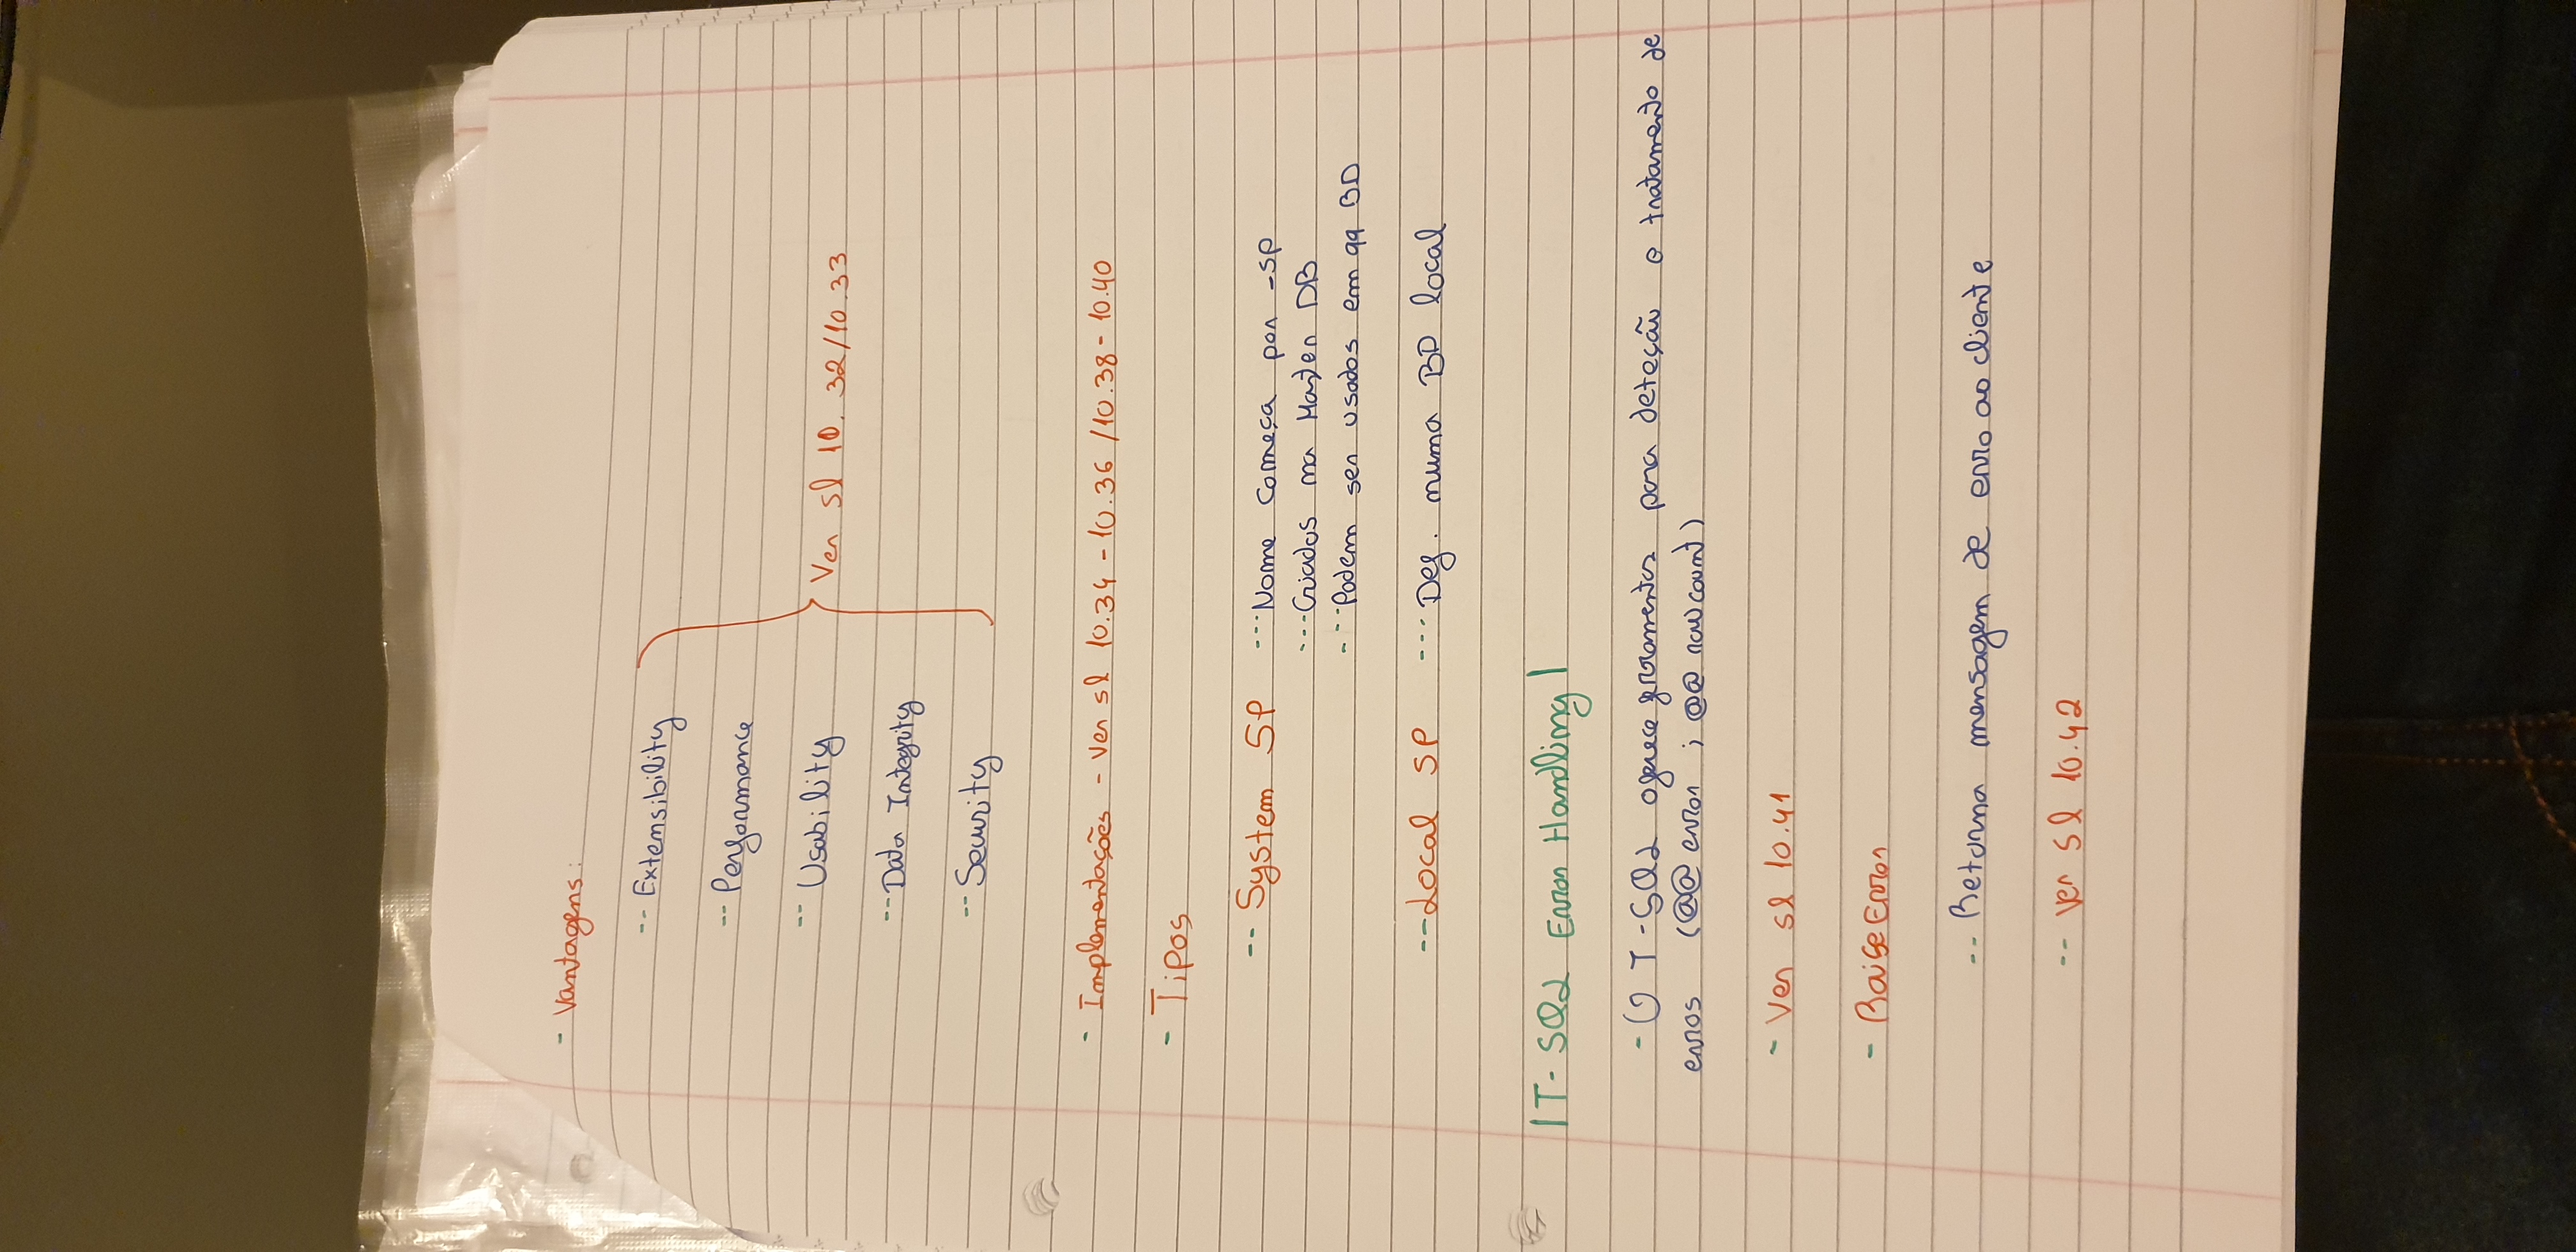 - Vantagens:
-- Extensibility
-- Performance
-- Usability
Ver sl 10.32/10.33
-- Data Integrity
-- Security
- Implementações - Ver sl 10.34 - 10.36 / 10.38 - 10.40
- Tipos
-- System SP --- Nome começa por -sp
--- Criados na Master DB
--- Podem ser usados em qq BD
-- Local SP --- Def. numa BD local
|T-SQL Error Handling|
- O T-SQL oferece ferramentas para deteção e tratamento de
erros (@@error ; @@rowcount)
- Ver sl 10.41
- RaiseError
-- Retorna mensagem de erro ao cliente
-- Ver sl 10.42